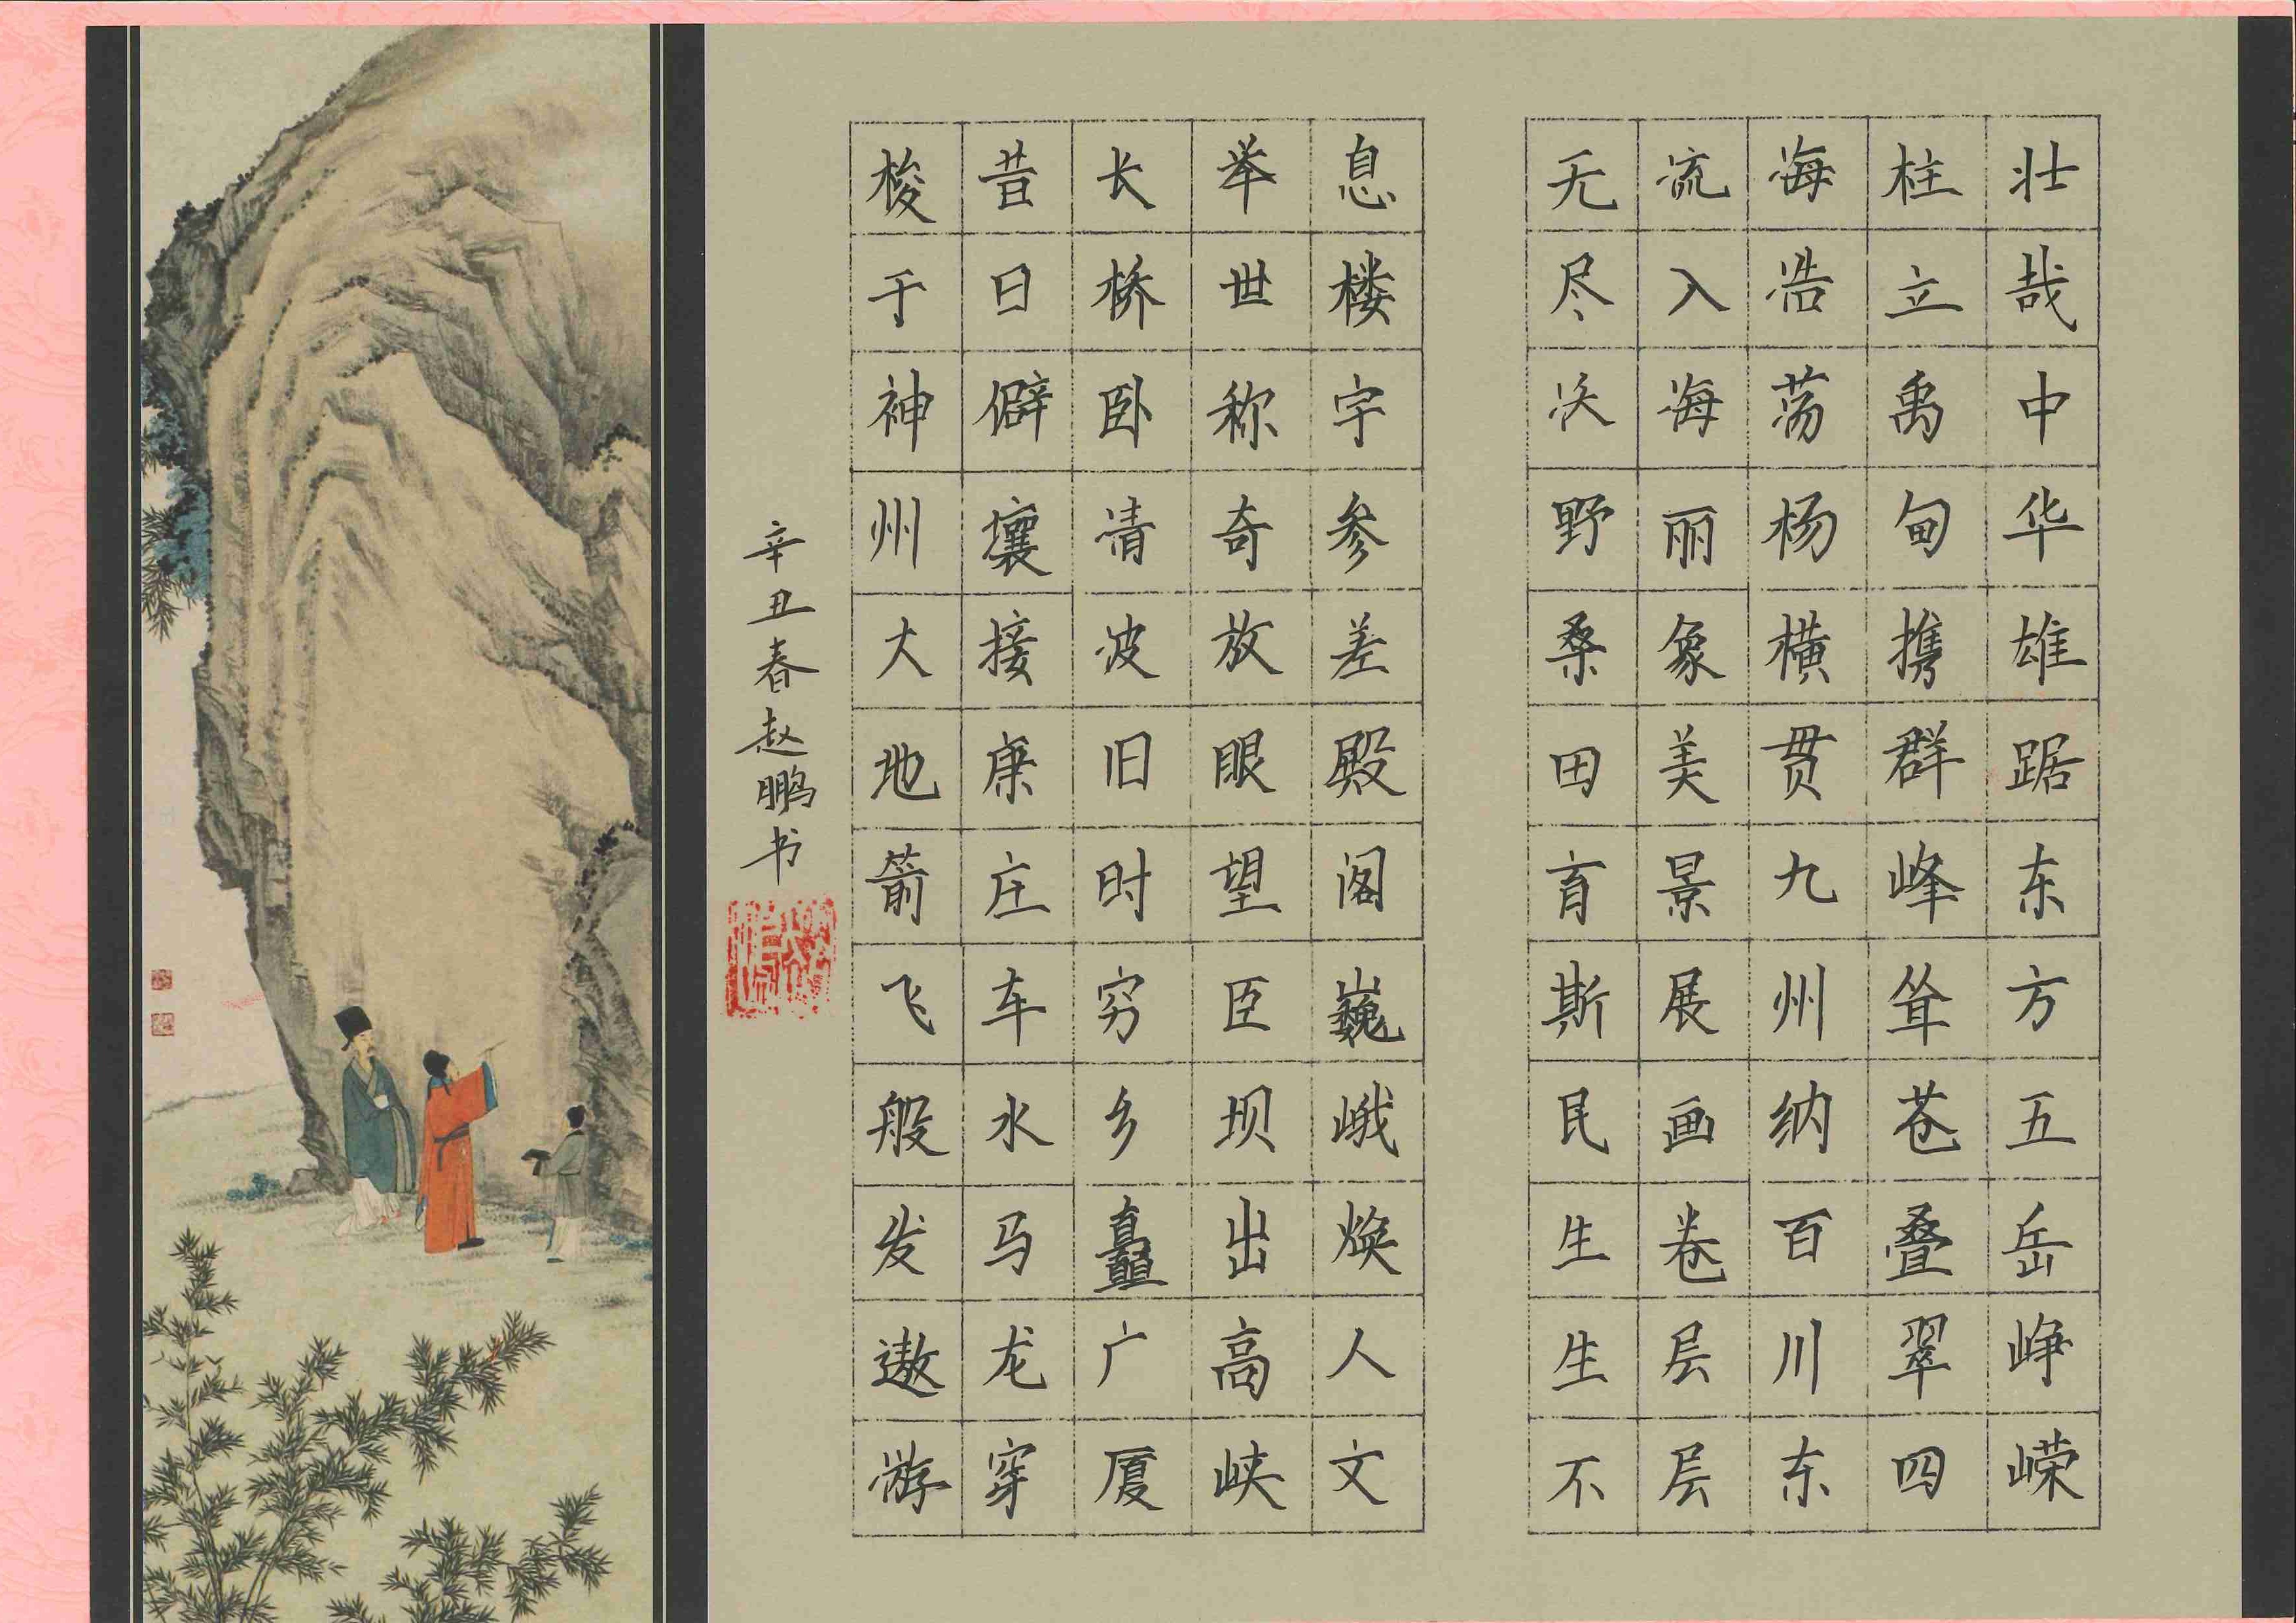 壮哉中华雄踞东方五岳峥嵘
柱立禹甸携群峰耸苍叠翠四
海浩荡杨横贯九州纳百川东
流入海丽象美景展画卷层层
无尽沃野桑田育斯民生生不
息楼宇参差殿阁巍峨焕人文
举世称奇放眼望臣坝出高峡
长桥卧清波旧时穷乡矗广厦
昔日僻壤接康庄车水马龙穿
梭于神州大地箭飞般发遨游
辛丑春赵鹏书